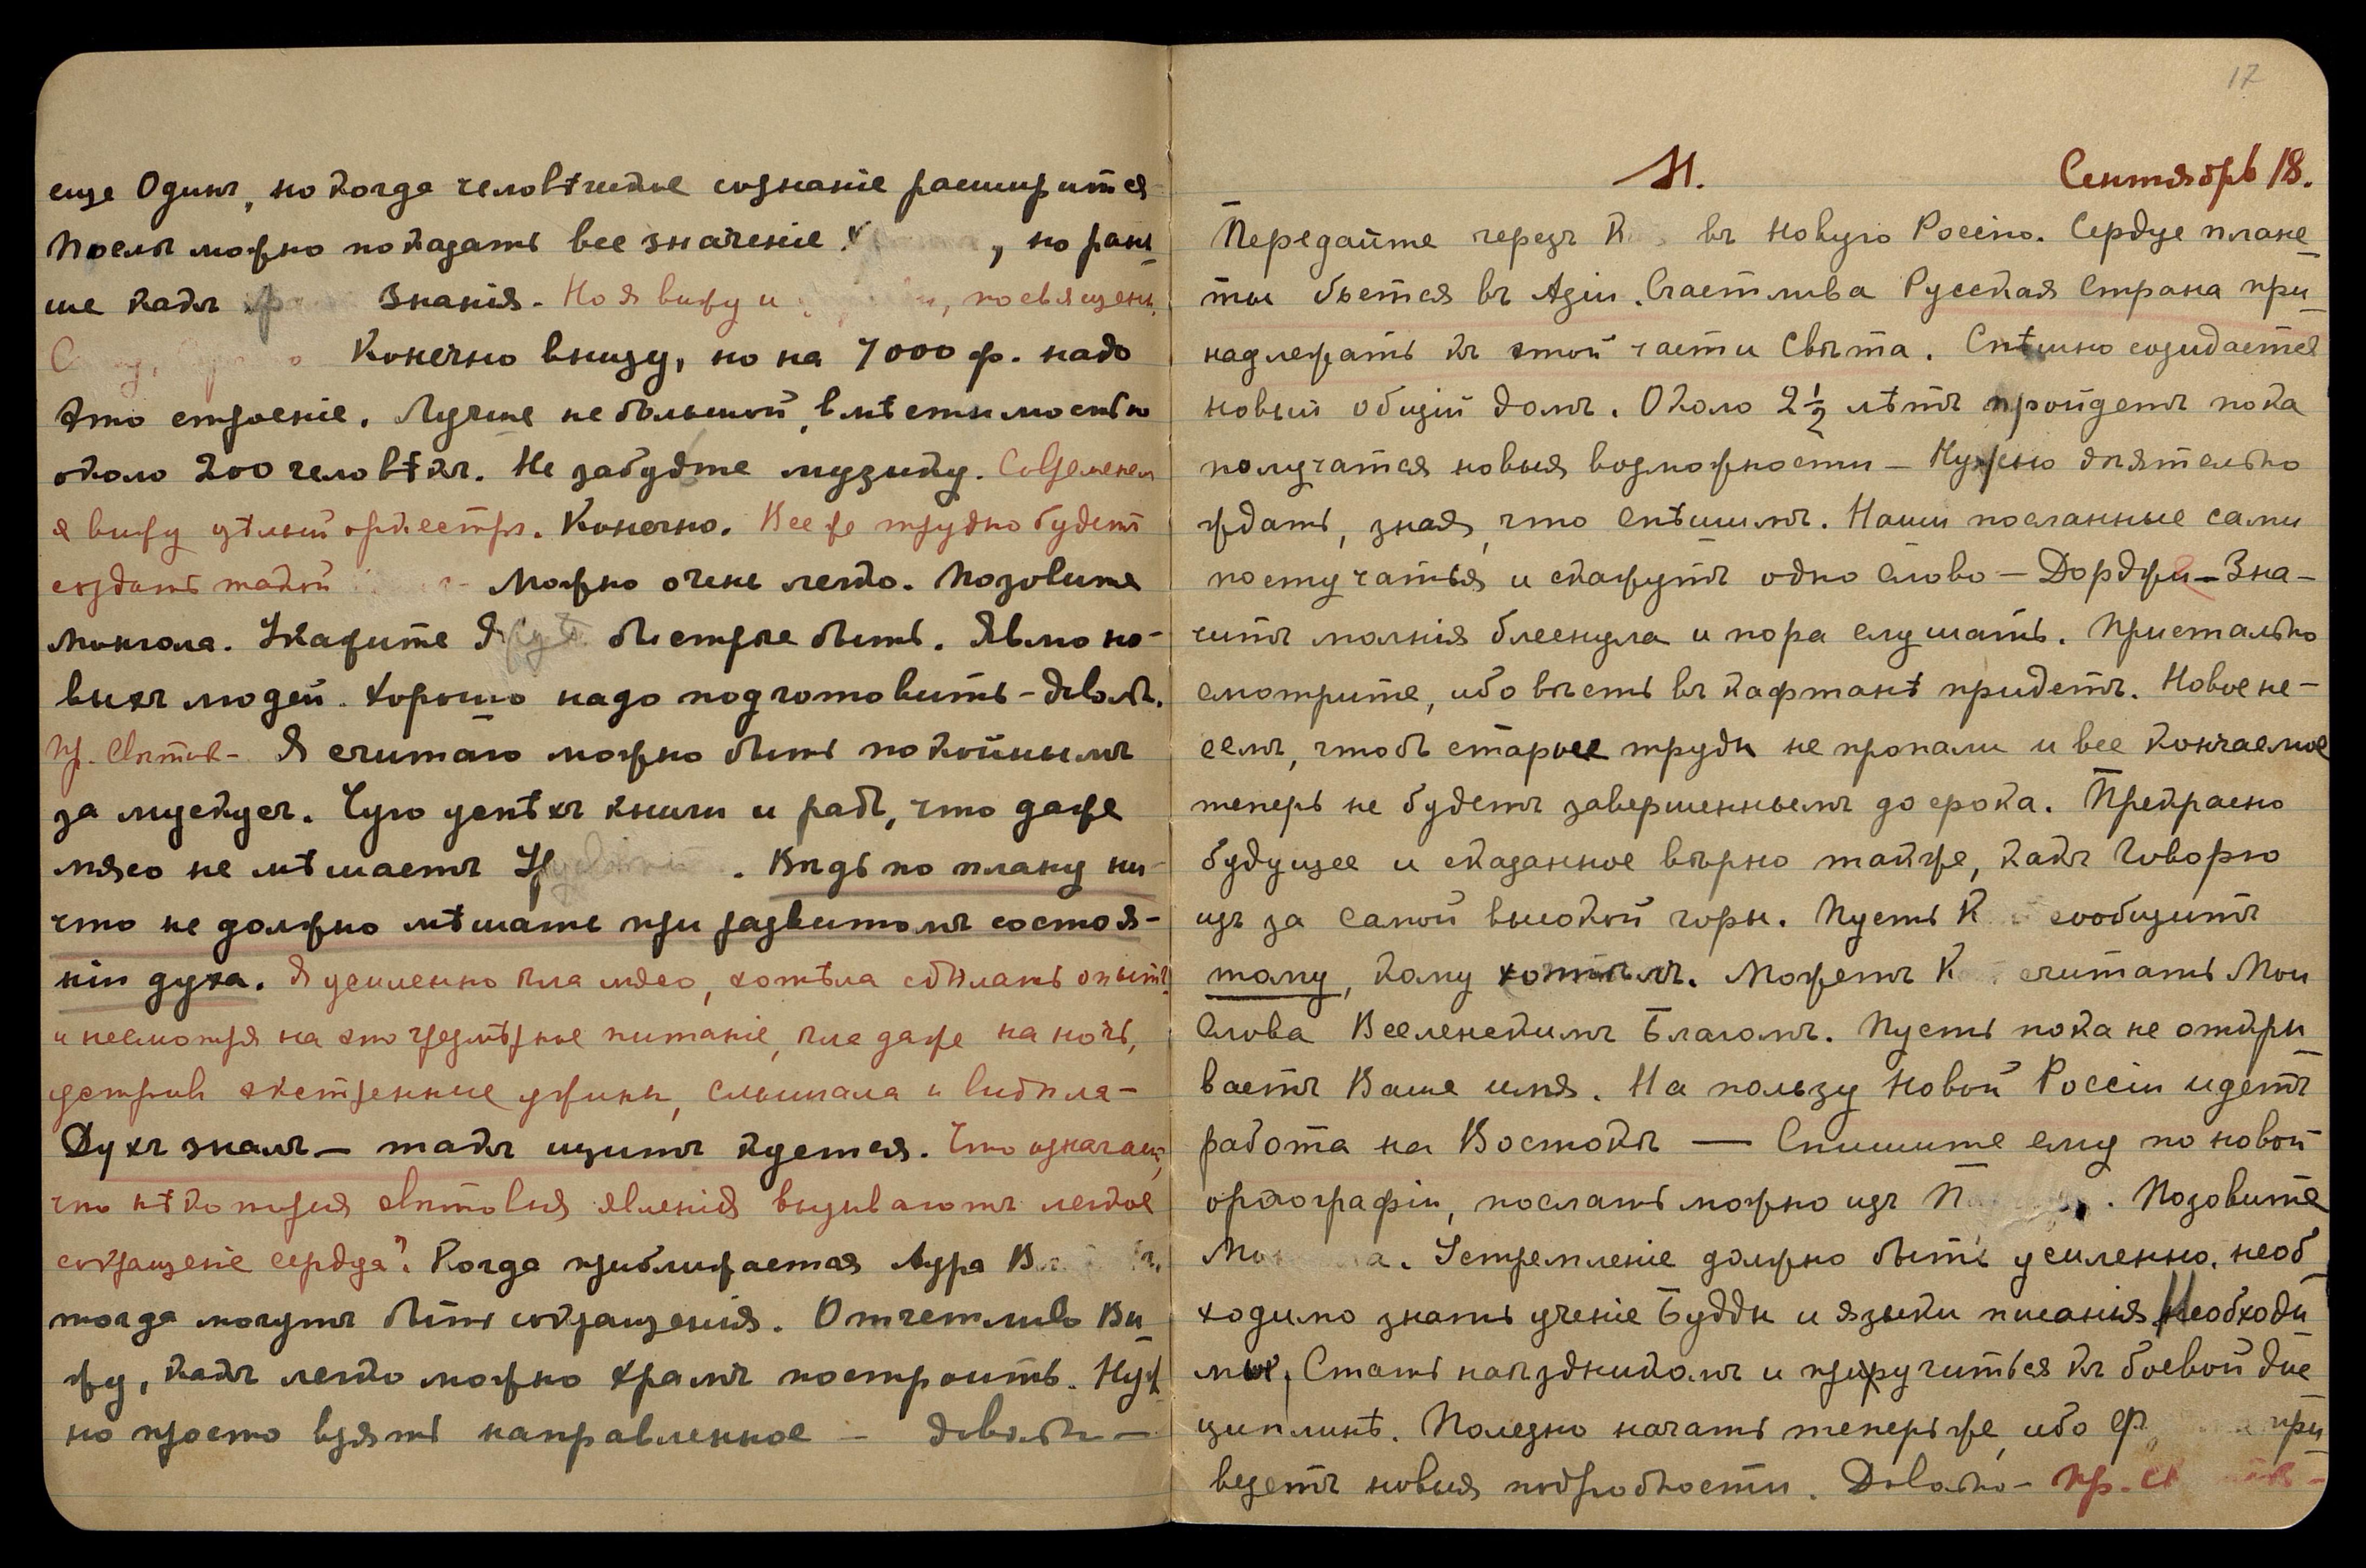 еще Одинъ, но когда человѣческое сознаніе расширится
послѣ можно показать все значеніе , но рань
ше какъ Знанія. Но я вижу и , посвящен.
Конечно внизу, но на 7000 ф. надо
это строеніе. Лучше небольшой, вмѣстимостью
около 200 человѣкъ. Не забудьте музыку. Современем
я вижу цѣлый оркестръ. Конечно. Все же трудно будетъ
создать такой Можно очень легко. Позовите
монгола. Укажите быстрѣе быть. Явлю но-
выхъ людей. Хорошо надо подготовить - довол.
Я считаю можно быть покойнымъ
за мускусъ. Чую успѣхъ книги и радъ, что даже
мясо не мѣшаетъ . Вѣдь по плану ни-
что не должно мѣшать при развитомъ состоя-
ніи духа. Я усиленно ѣла мясо, хотѣла сдѣлать опытъ
и несмотря на это чрезмѣрное питаніе, ѣла даже на ночь,
устроив экстренные ужины, слышала и видѣла-
Духъ зналъ — такъ щитъ куется. Что означает,
что нѣкоторыя свѣтовыя явленія вызываютъ легкое
сокращеніе сердца? Когда приближается Аура В
тогда могутъ быть сокращенія. Отчетливо Ви
жу, какъ легко можно храмъ построить. Нуж
но просто взять направленное — довольн—
17
М. Сентябрь 18.
Передайте черезъ К въ новую Россію. Сердце плане
ты бьется въ Азіи. Счастлива Русская Страна при
надлежать къ этой части Свѣта. Спѣшно созидается
новый общій домъ. Около 2½ лѣтъ пройдетъ пока
получатся новыя возможности — Нужно дѣятельно
ждать, зная, что спѣшимъ. Наши посланные сами
постучатся и скажутъ одно слово — Дордже — Зна-
читъ молнія блеснула и пора слушать. Пристально
смотрите, ибо вѣсть въ кафтанѣ придетъ. Новое не-
семъ, чтобъ старые труды не пропали и все кончаемое
теперь не будетъ завершеннымъ до срока. Прекрасно
будущее и сказанное вѣрно также, какъ Говорю
изъ за самой высокой горы. Пусть К сообщитъ
тому, кому хотѣлъ. Можетъ К считать Мои
слова Вселенскимъ Благомъ. Пусть пока не откры
ваетъ Ваше имя. На пользу Новой Россіи идетъ
работа на Востокѣ — Спишите ему по новой
орѳографіи, послать можно изъ П . Позовите
Мо а. Устремленіе должно быть усиленно, необ
ходимо знать ученіе Будды и языки писанія Необходи
мы, Стать наѣздникомъ и пріручиться къ боевой дис
циплинѣ. Полезно начать теперь же, ибо при
везетъ новыя подробности. Довольно -